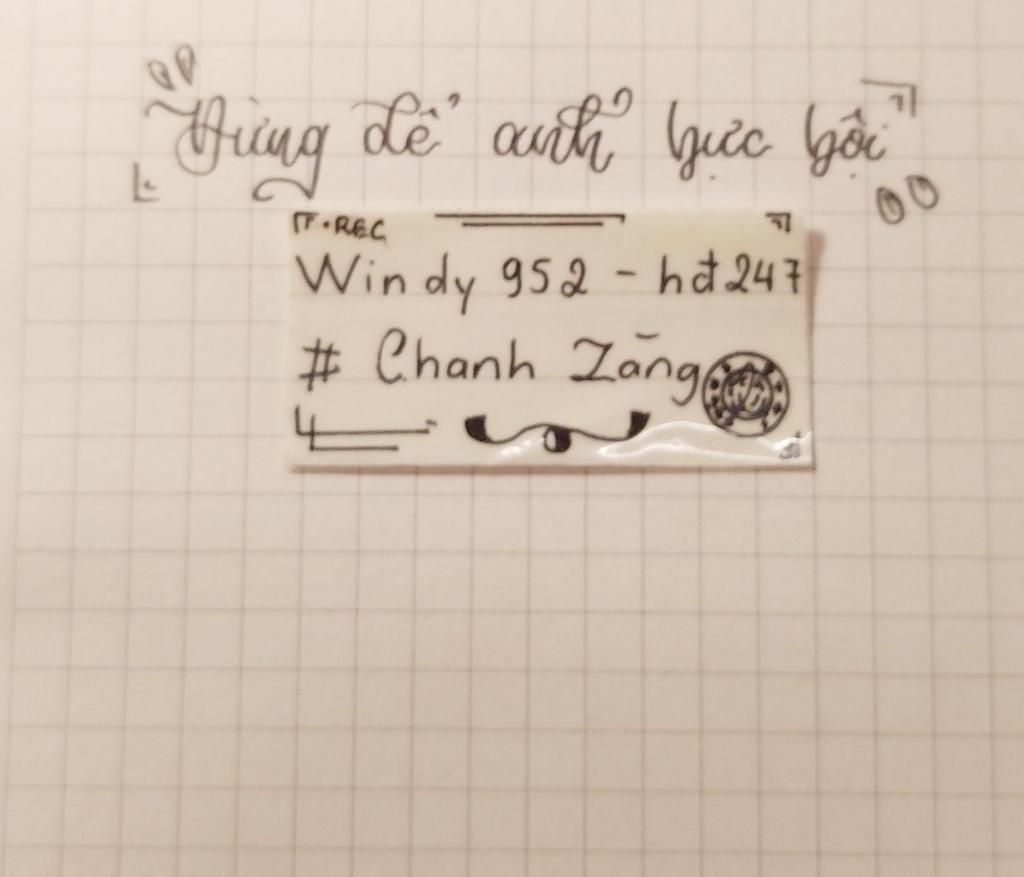 Đừng để anh bực bội
REC
Windy 952 - hđ247
# Chanh Zāng